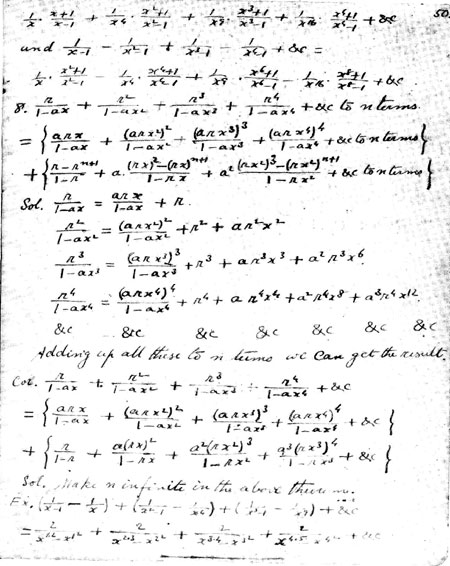 1/x · (x+1)/(x-1) + 1/x⁴ · (x²+1)/(x²-1) + 1/x⁹ · (x³+1)/(x³-1) + 1/x¹⁶ · (x⁴+1)/(x⁴-1) + &c 50
and 1/(x-1) - 1/(x²-1) + 1/(x³-1) - 1/(x⁴-1) + &c =
1/x · (x²+1)/(x²-1) - 1/x⁴ · (x⁴+1)/(x⁴-1) + 1/x⁹ · (x⁶+1)/(x⁶-1) - 1/x¹⁶ · (x⁸+1)/(x⁸-1) + &c
8. r/(1-ax) + r²/(1-ax²) + r³/(1-ax³) + r⁴/(1-ax⁴) + &c to n terms
= { arx/(1-ax) + (arx²)²/(1-ax²) + (arx³)³/(1-ax³) + (arx⁴)⁴/(1-ax⁴) + &c to n terms }
+ { (r-rⁿ⁺¹)/(1-r) + a · ((rx)²-(rx)ⁿ⁺¹)/(1-rx) + a² ((rx²)³-(rx²)ⁿ⁺¹)/(1-rx²) + &c to n terms }
Sol. r/(1-ax) = arx/(1-ax) + r.
r²/(1-ax²) = (arx²)²/(1-ax²) + r² + ar²x²
r³/(1-ax³) = (arx³)³/(1-ax³) + r³ + ar³x³ + a²r³x⁶
r⁴/(1-ax⁴) = (arx⁴)⁴/(1-ax⁴) + r⁴ + ar⁴x⁴ + a²r⁴x⁸ + a³r⁴x¹²
&c &c &c &c &c &c &c
Adding up all these to n terms we can get the result.
Cor. r/(1-ax) + r²/(1-ax²) + r³/(1-ax³) + r⁴/(1-ax⁴) + &c
= { arx/(1-ax) + (arx²)²/(1-ax²) + (arx³)³/(1-ax³) + (arx⁴)⁴/(1-ax⁴) + &c }
+ { r/(1-r) + a(rx)²/(1-rx) + a²(rx²)³/(1-rx²) + a³(rx³)⁴/(1-rx³) + &c }
Sol. Make n infinite in the above theorem.
Ex. (1/(x-1) - 1/x) + (1/(x²-1) - 1/x⁴) + ( - ) + &c
= + + + + &c